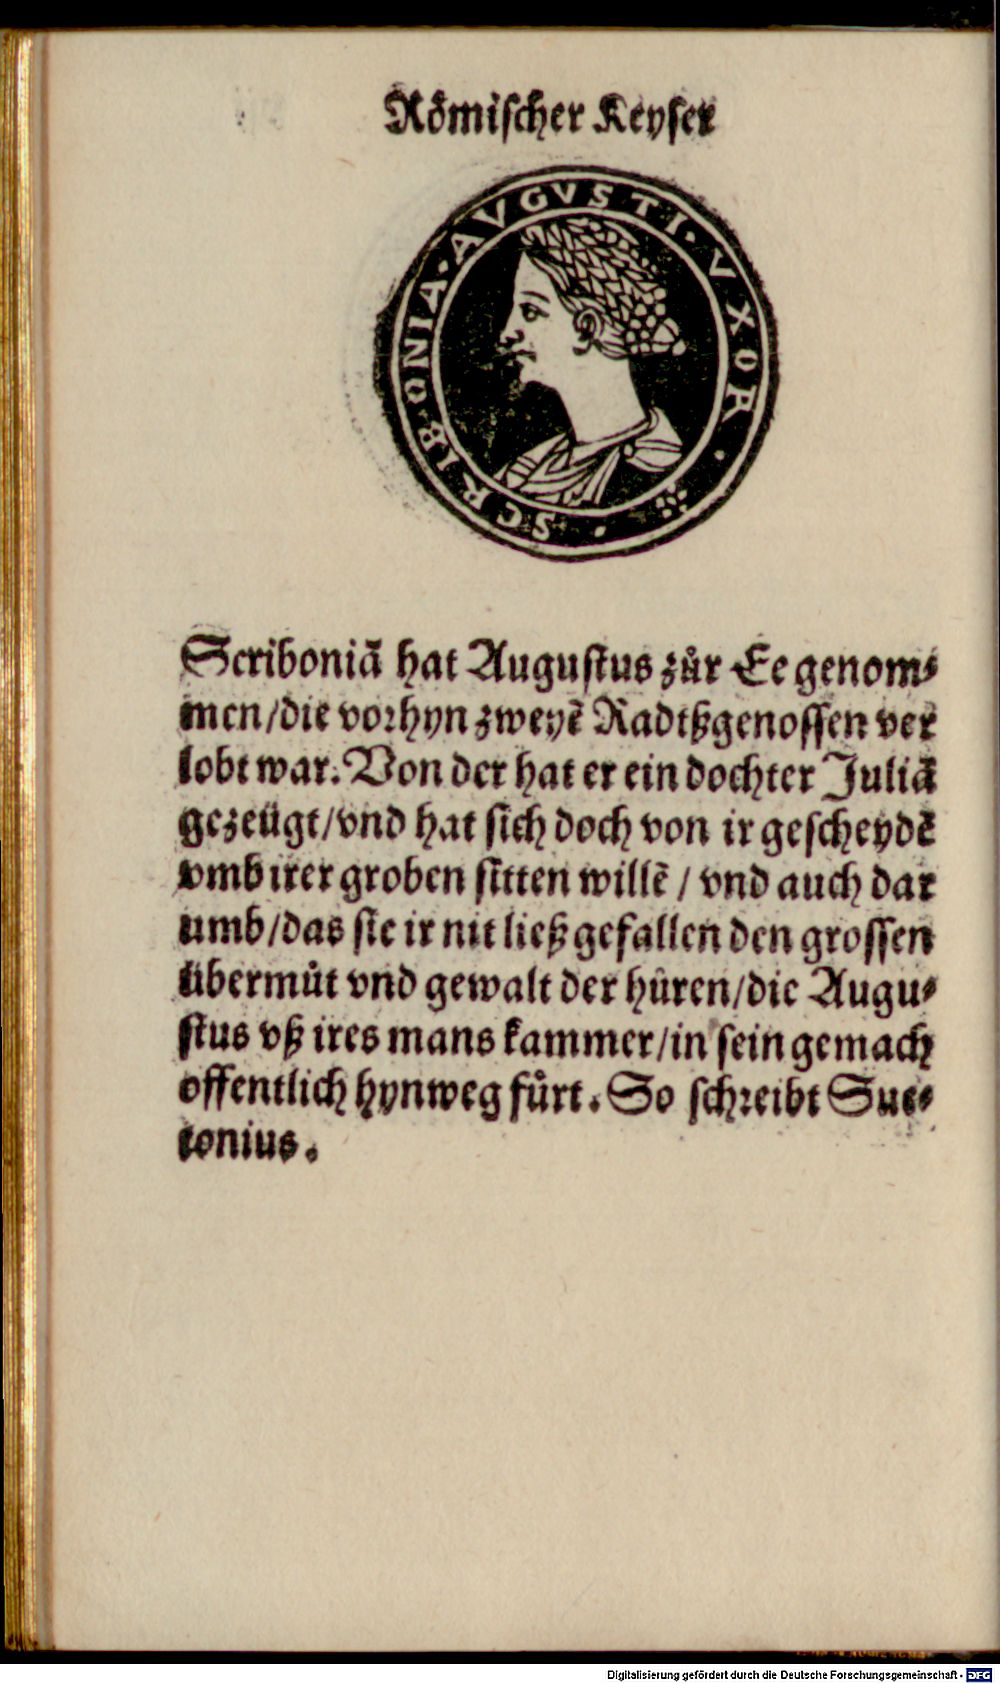 Roͤmischer Keyser
SCRIBONIA · AVGVSTI · VXOR ·
Scriboniā hat Augustus zůr Ee genom⸗
men/die vorhyn zweyē Radtßgenossen ver
lobt war. Von der hat er ein dochter Juliā
gezeügt/vnd hat sich doch von ir gescheydē
vmb irer groben sitten willē / vnd auch dar
umb/das sie ir nit ließ gefallen den grossen
übermůt vnd gewalt der hůren/die Augu⸗
stus vß ires mans kammer/in sein gemach
offentlich hynweg fůrt. So schreibt Sue⸗
tonius.
Digitalisierung gefördert durch die Deutsche Forschungsgemeinschaft - DFG